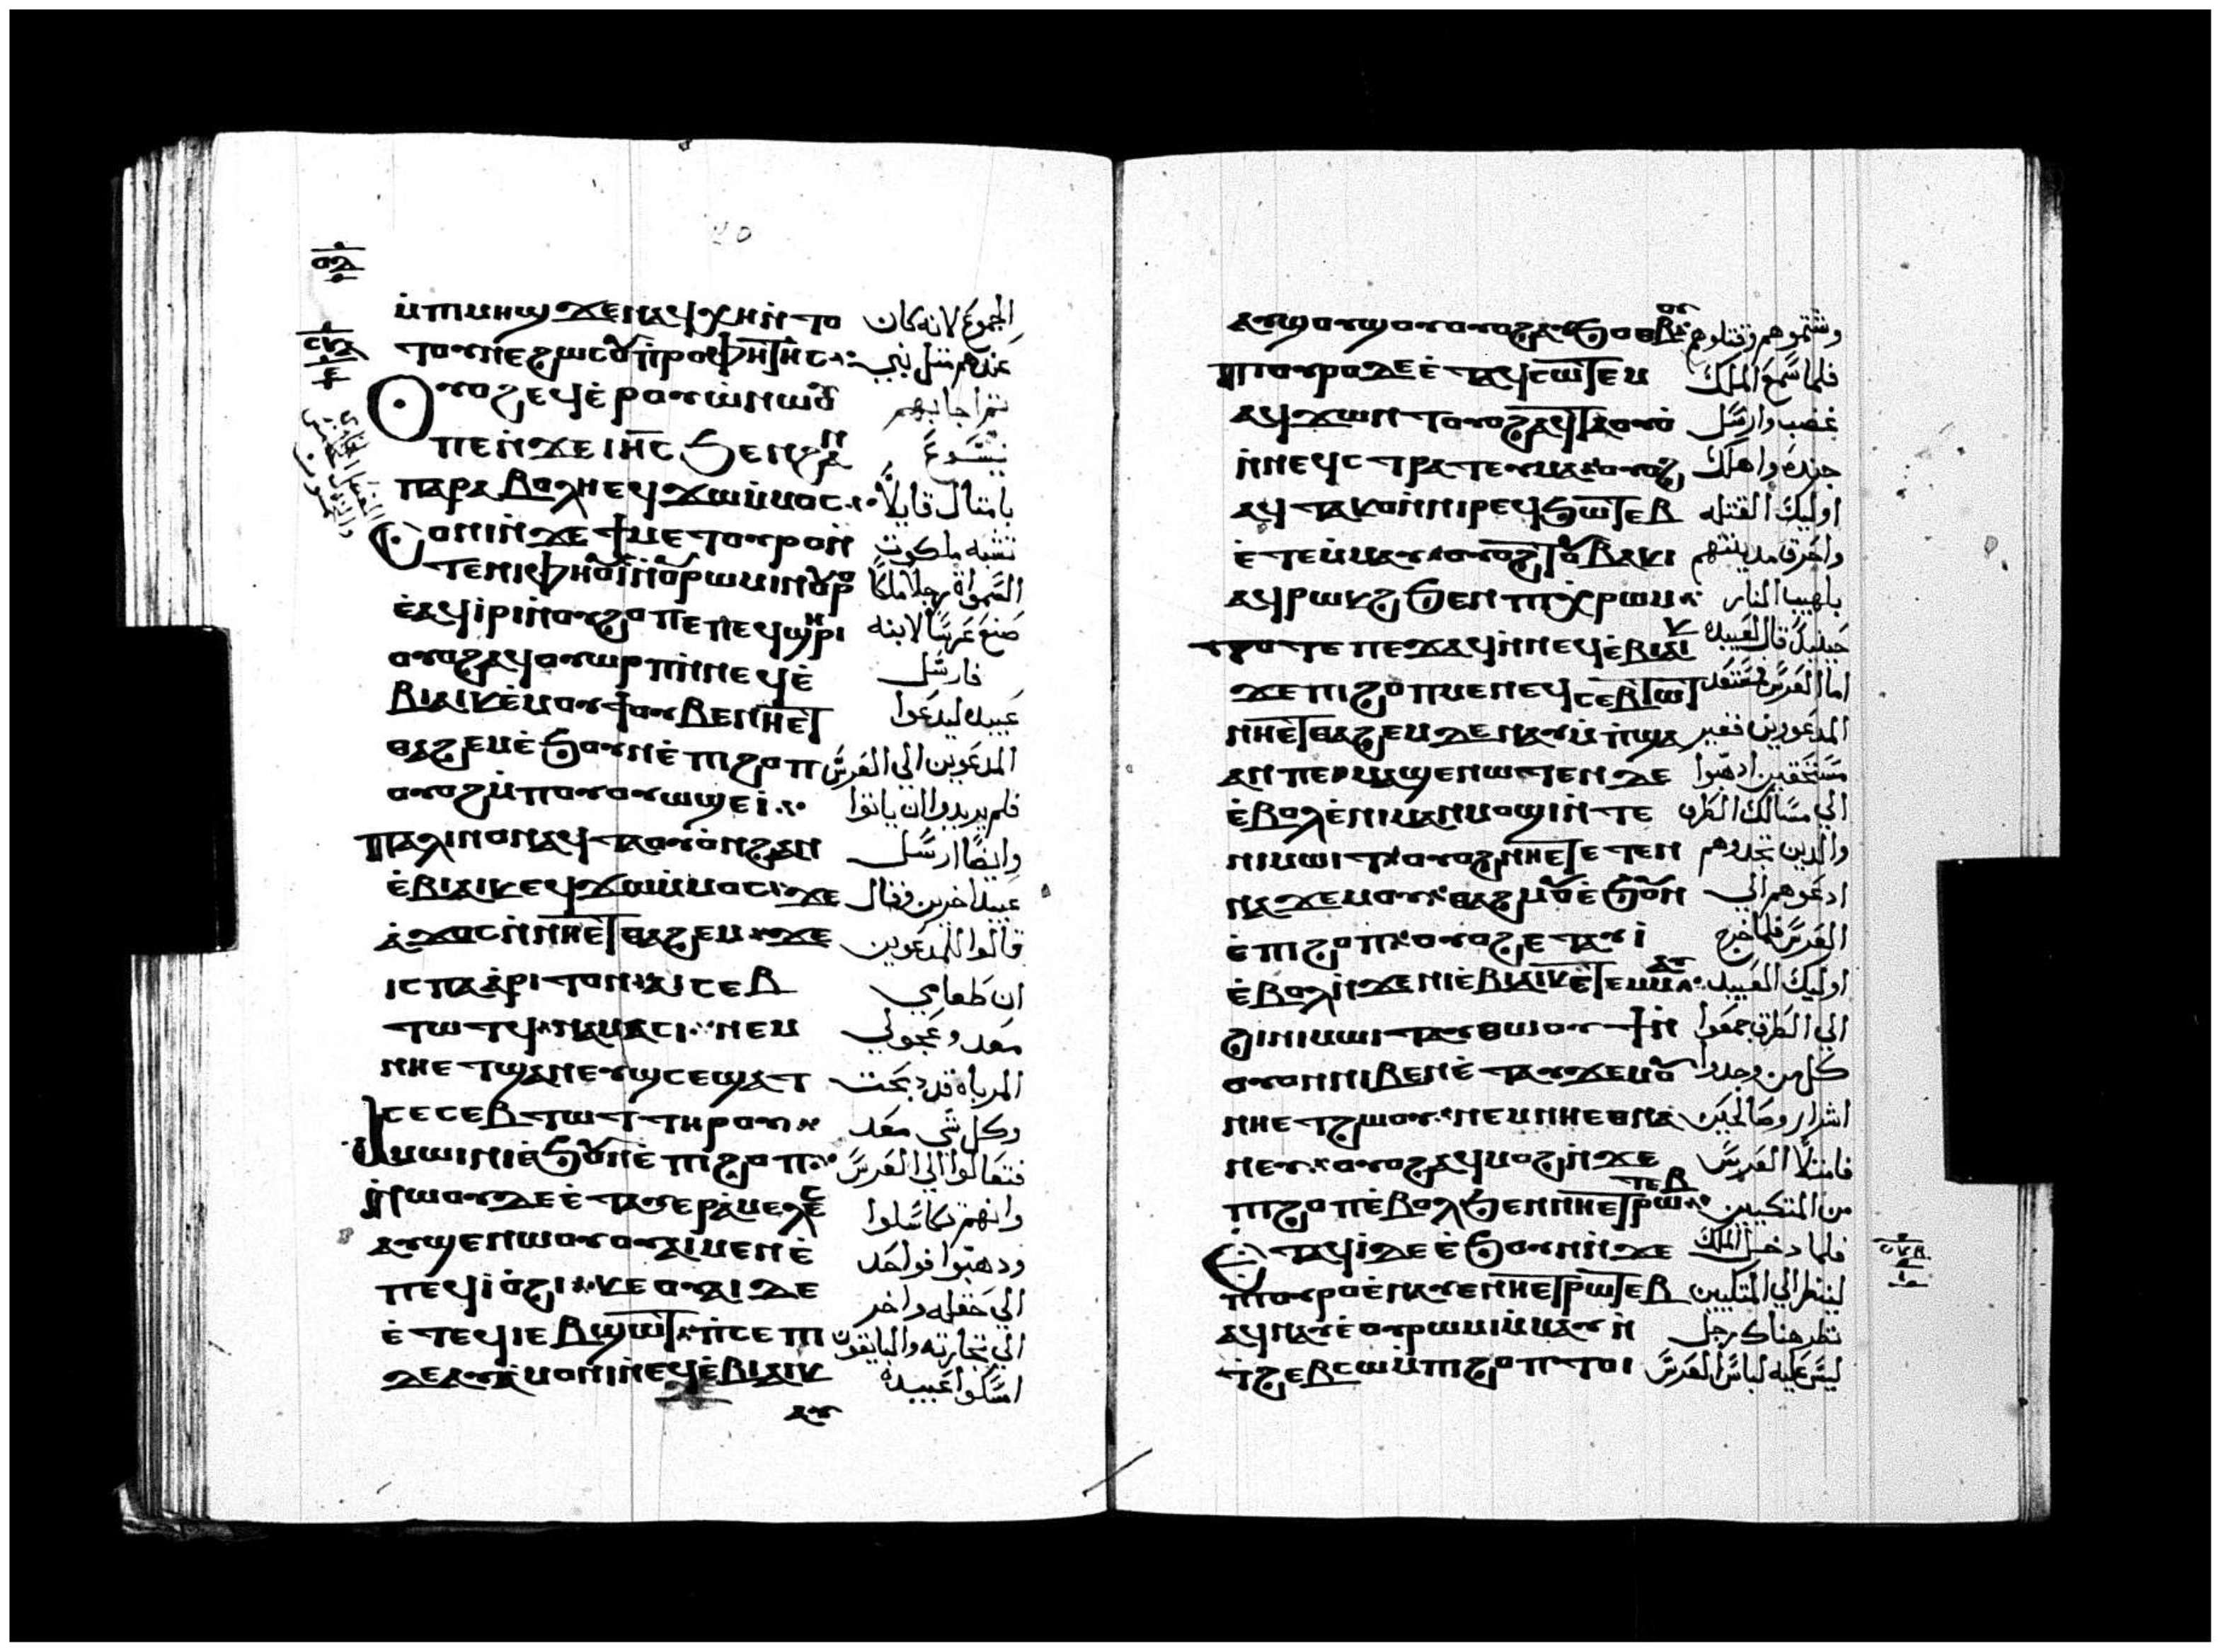 ⲙ̀ⲡⲓⲙⲏϣ ϫⲉ ⲛⲁϥⲭⲏ ⲛ̀ⲧⲟ الجموع لانه كان
ⲧⲟⲩ ⲡⲉ ϩⲱⲥ ⲟⲩⲡ̀ⲣⲟⲫⲏⲧⲏⲥ عندهم مثل نبي
ⲟⲩⲟϩ ⲉϥⲉ̀ⲣⲟⲩⲱ̀ ⲛⲱⲟⲩ
ⲡⲉⲛ̀ϫⲉ ⲓⲏⲥ ϧⲉⲛ ϩⲁⲛ يسوع
ⲡⲁⲣⲁⲃⲟⲗⲏ ⲉϥϫⲱ ⲙ̀ⲙⲟⲥ بامثال قايلاً
ⲟⲛⲓ ⲛ̀ϫⲉ ϯⲙⲉⲧⲟⲩⲣⲟ ⲛ̀ تشبه ملكوت
ⲧⲉ ⲛⲓⲫⲏⲟⲩⲓ̀ ⲛ̀ⲟⲩⲣⲱⲙⲓ ⲛ̀ⲟⲩⲣⲟ السموات رجلا ملكا
ⲉ̀ⲁϥⲓ̀ⲣⲓ ⲛ̀ⲟⲩϩⲟⲡ ⲉⲡⲉϥϣⲏⲣⲓ صنع عرسا لابنه
ⲟⲩⲟϩ ⲁϥⲟⲩⲱⲣⲡ ⲛ̀ⲛⲉϥⲉ̀ فارسل
ⲃⲓⲁⲓⲕ ⲉ̀ⲙⲟⲩϯ ⲟⲩⲃⲉ ⲛⲏⲉⲧ عبيده ليدعوا
ⲑⲁϩⲉⲙ ⲉ̀ϧⲟⲩⲛ ⲉ̀ⲡⲓϩⲟⲡ المدعوين الي العرس
ⲟⲩⲟϩ ⲙ̀ⲡⲟⲩⲟⲩⲱϣ ⲉⲓ̀ فلم يريدوا ان ياتوا
ⲡⲁⲗⲓⲛ ⲟⲛ ⲁϥⲧⲁⲟⲩⲟ̀ ⲛ̀ϩⲁⲛ وايضا ارسل
ⲉ̀ⲃⲓⲁⲓⲕ ⲉϥϫⲱ ⲙ̀ⲙⲟⲥ ϫⲉ عبيدا اخرين وقال
ⲁ̀ϫⲟⲥ ⲛ̀ⲛⲏⲉⲧⲑⲁϩⲉⲙ ϫⲉ قالوا للمدعوين
ⲓⲥ ⲡⲁⲁ̀ⲣⲓⲧⲟⲛ ⲁⲓⲥⲉⲃ ان طعامي
ⲧⲱⲧϥ ⲛⲁⲙⲁⲥⲓ ⲛⲉⲙ معد وعجولي
ⲛⲏⲉⲧϣⲁⲛⲉⲩϣ ⲥⲉϣⲁⲧ المرباة قد دبحت
ⲥⲉⲥⲉⲃⲧⲱⲧ ⲧⲏⲣⲟⲩ وكل شي معد
ⲁ̀ⲙⲱⲓⲛⲓ ⲉ̀ϧⲟⲩⲛ ⲉ̀ⲡⲓϩⲟⲡ فتعالوا الي العرس
ⲛ̀ⲑⲱⲟⲩ ⲇⲉ ⲉ̀ⲧⲁⲩⲉⲣⲁ̀ⲙⲉⲗⲉⲥ وانهم تكاسلوا
ⲁⲩϣⲉⲛⲱⲟⲩ ⲟⲩⲁⲓ ⲙⲉⲛ ⲉ̀ ودهبوا فواحد
ⲡⲉϥⲓⲟ̀ϩⲓ ⲕⲉⲟⲩⲁⲓ ⲇⲉ الي حقله واخر
ⲉ̀ⲧⲉϥⲓⲉⲃϣⲱⲧ ⲡ̀ⲥⲉⲡⲓ الي تجارته والباقون
ⲇⲉ ⲁⲩⲁ̀ⲙⲟⲛⲓ ⲛ̀ⲛⲉϥⲉ̀ⲃⲓⲁⲓⲕ امسكوا عبيده
ⲁⲩ
ⲁⲩϣⲟⲩϣⲟⲩ ⲟⲩⲟϩ ⲁⲩϧⲟⲑⲃⲟⲩ وشتموهم وقتلوهم
ⲡⲟⲩⲣⲟ ⲇⲉ ⲉ̀ⲧⲁϥⲥⲱⲧⲉⲙ فلما سمع الملك
ⲁϥϫⲱⲛⲧ ⲟⲩⲟϩ ⲁϥⲧⲁⲟⲩⲟ̀ غضب وارسل
ⲛ̀ⲛⲉϥⲥⲧⲣⲁⲧⲉⲩⲙⲁ ⲟⲩⲟϩ جنده واهلك
ⲁϥⲧⲁⲕⲟ ⲛ̀ⲛⲓⲣⲉϥϧⲱⲧⲉⲃ اوليك القتله
ⲉ̀ⲧⲉⲙ̀ⲙⲁⲩ ⲟⲩⲟϩ ⲧⲟⲩⲃⲁⲕⲓ واحرق مدينتهم
ⲁϥⲣⲱⲕϩ ϧⲉⲛ ⲡⲓⲭ̀ⲣⲱⲙ بلهيب النار
ⲧⲟⲧⲉ ⲡⲉϫⲁϥ ⲛ̀ⲛⲉϥⲉ̀ⲃⲓⲁⲓⲕ حينيذ قال لعبيده
ϫⲉ ⲡⲓϩⲟⲡ ⲙⲉⲛ ⲉϥⲥⲉⲃⲧⲱⲧ اما العرس فمستعد
ⲛⲏⲉⲧⲑⲁϩⲉⲙ ⲇⲉ ⲛⲁⲩⲙ̀ⲡϣⲁ المدعوين فغير
ⲁⲛ ⲡⲉ ⲙⲁϣⲉⲛⲱⲧⲉⲛ ⲇⲉ مستحقين ادهبوا
ⲉ̀ⲃⲟⲗ ⲉ̀ⲛⲓⲙⲁⲛⲙⲟϣⲓ ⲛ̀ⲧⲉ الي مسالك الطرق
ⲛⲓⲙⲱⲓⲧ ⲟⲩⲟϩ ⲛⲏⲉⲧⲉⲧⲉⲛ والدين تجدوهم
ⲛⲁϫⲉⲙⲟⲩ ⲑⲁϩⲙⲟⲩ ⲉ̀ϧⲟⲩⲛ ادعوهم الي
ⲉ̀ⲡⲓϩⲟⲡ ⲟⲩⲟϩ ⲉⲧⲁⲩⲓ̀ العرس فلما خرج
ⲉ̀ⲃⲟⲗ ⲛ̀ϫⲉ ⲛⲓⲉ̀ⲃⲓⲁⲓⲕ ⲉ̀ⲧⲉⲙⲙⲁⲩ اوليك العبيد
ϩⲓ ⲛⲓⲙⲱⲓⲧ ⲁⲩⲑⲱⲟⲩϯ ⲛ̀ الي الطرق جمعوا
ⲟⲩⲟⲛ ⲛⲓⲃⲉⲛ ⲉ̀ⲧⲁⲩϫⲉⲙⲟⲩ كل من وجدوا
ⲛⲏⲉⲧϩⲱⲟⲩ ⲛⲉⲙ ⲛⲏⲉⲑⲛⲁ اشرار وصالحين
ⲛⲉⲩ ⲟⲩⲟϩ ⲁϥⲙⲟϩ ⲛ̀ϫⲉ فامتلا العرس
ⲡⲓϩⲟⲡ ⲉ̀ⲃⲟⲗ ϧⲉⲛ ⲛⲏⲉⲧⲣⲱⲧⲉⲃ من المتكيين
ⲉ̀ⲧⲁϥⲓ̀ ⲇⲉ ⲉ̀ϧⲟⲩⲛ ⲛ̀ϫⲉ فلما دخل الملك
ⲡⲟⲩⲣⲟ ⲉ̀ⲛⲁⲩ ⲉⲛⲏⲉⲧⲣⲱⲧⲉⲃ لينظر الي المتكيين
ⲁϥⲛⲁⲩ ⲉ̀ⲟⲩⲣⲱⲙⲓ ⲙ̀ⲙⲁⲩ ⲛ̀ نظر هناك رجل
ⲧϩⲉⲃⲥⲱ ⲙ̀ⲡⲓϩⲟⲡ ⲧⲟⲓ ليس عليه لباس العرس